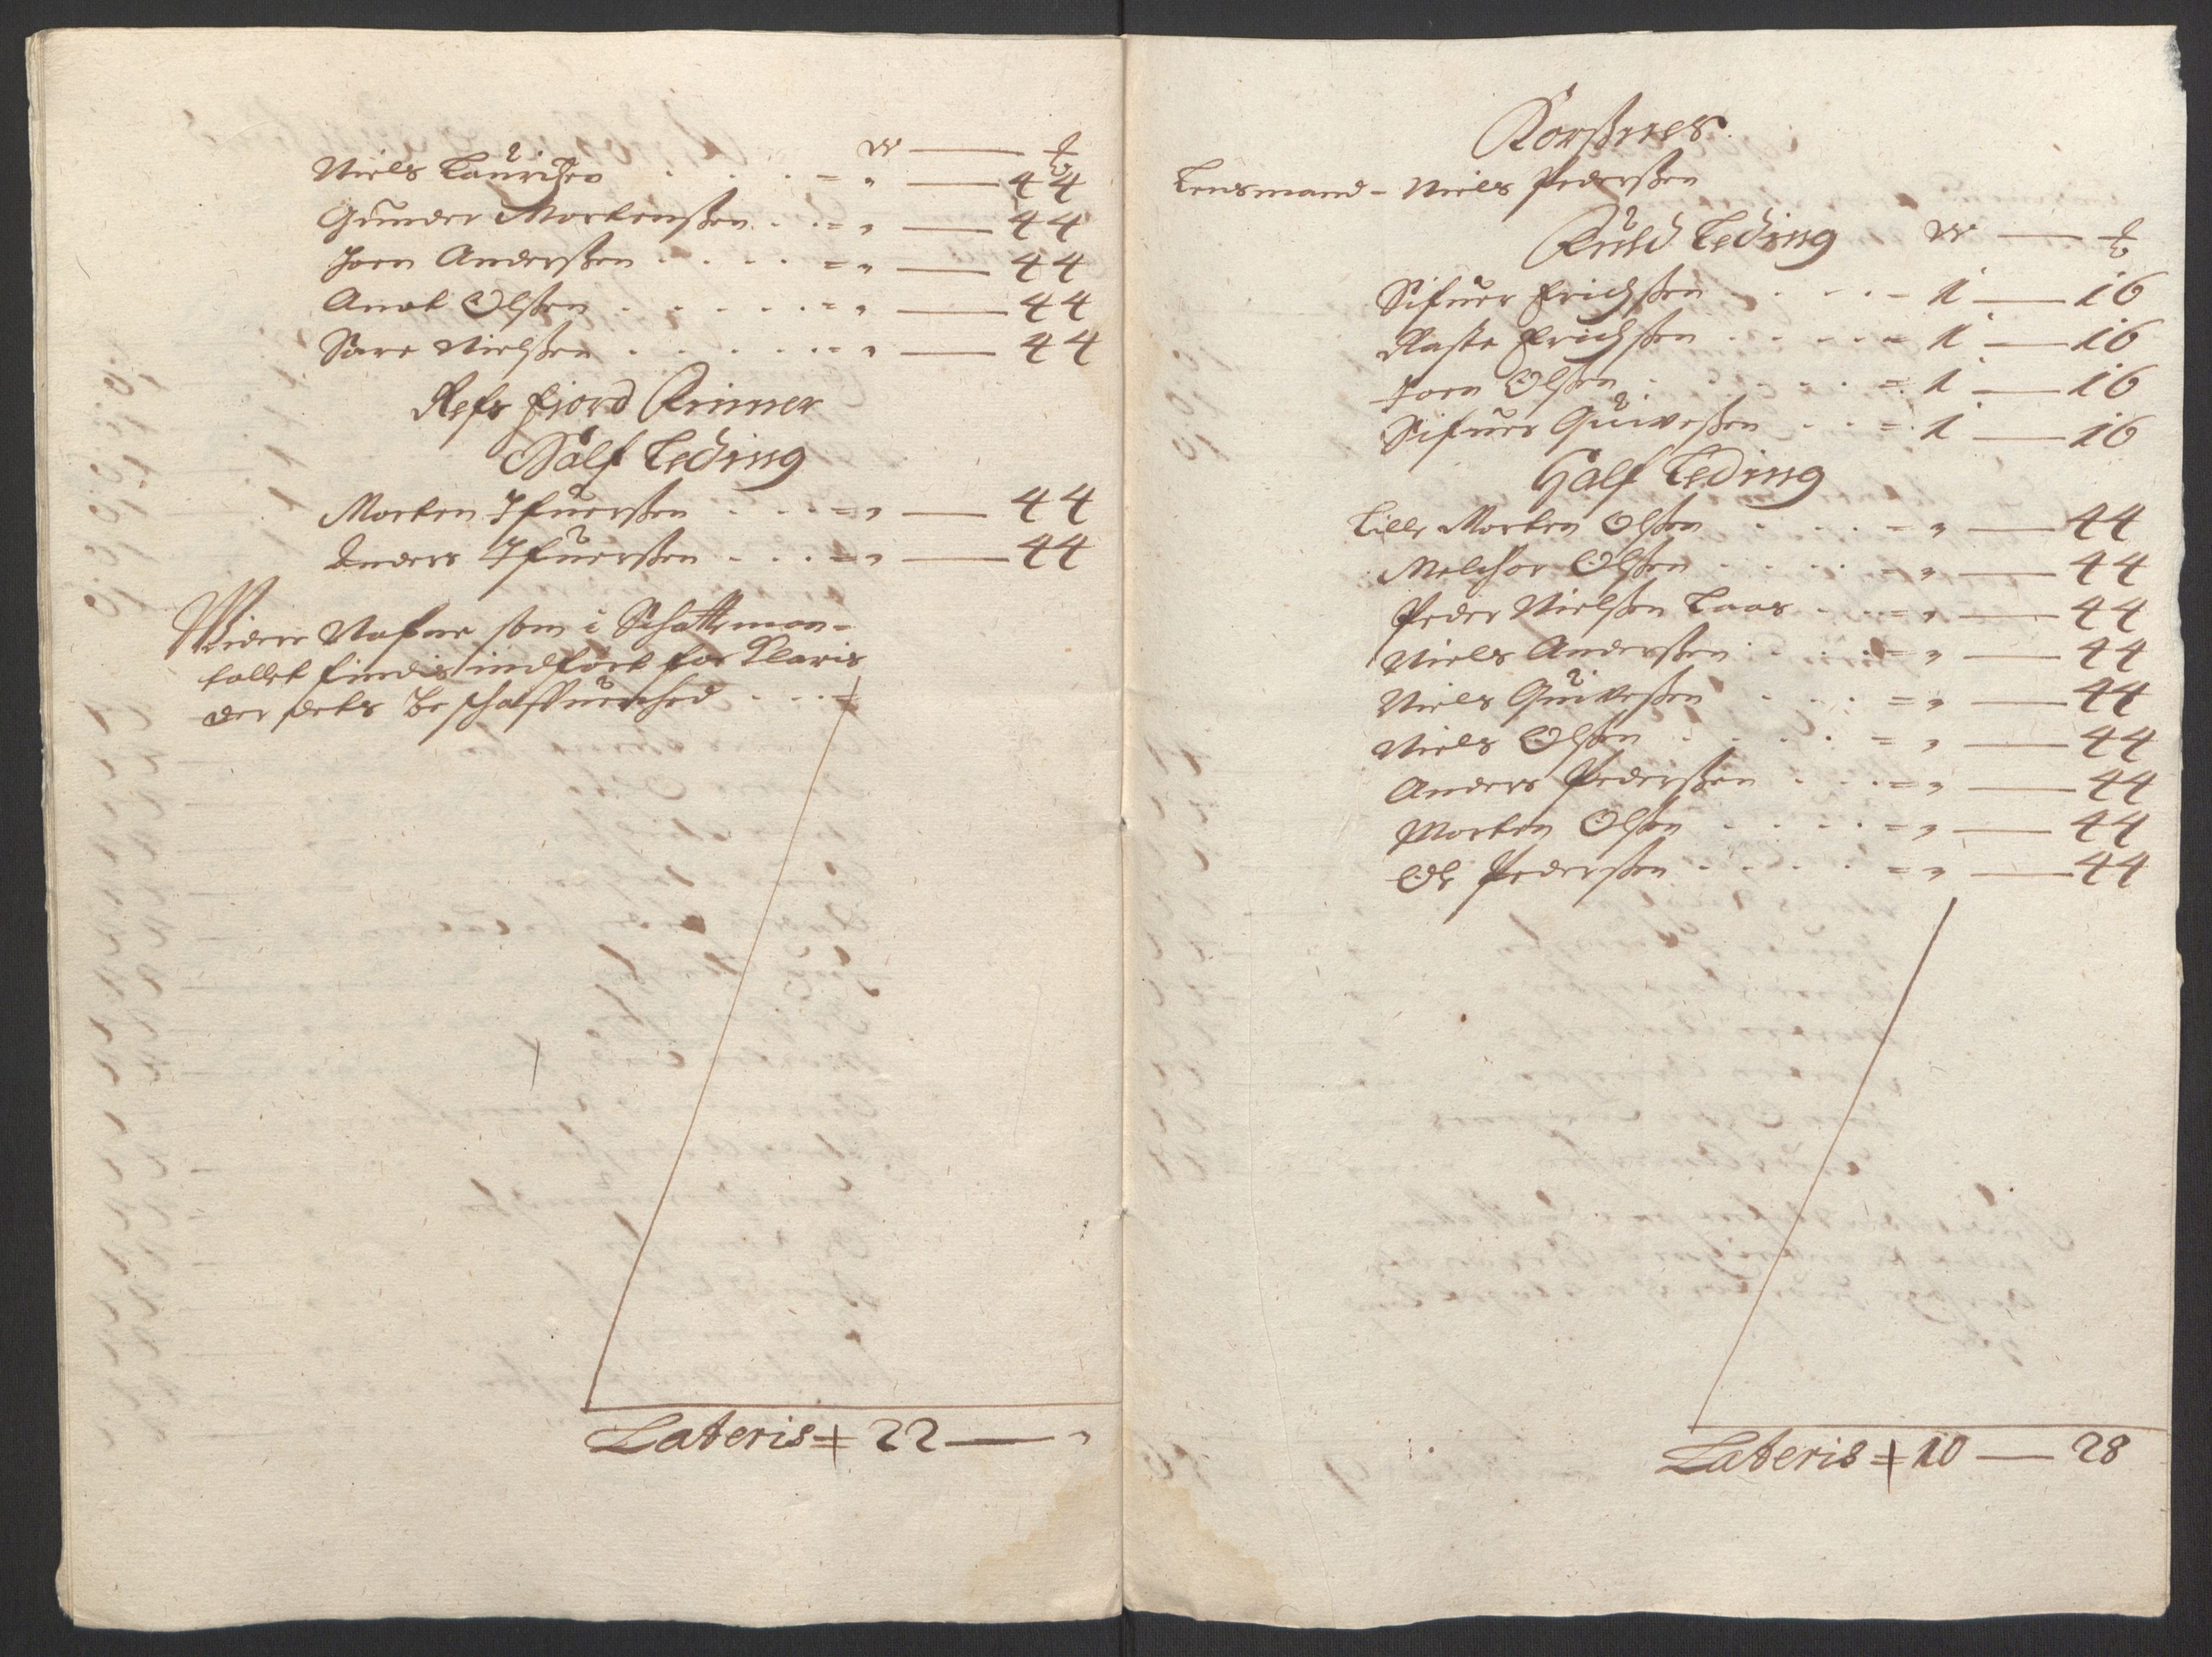 W — ℔
Niels Lauridsen . . . . = " — 44
Gunder Mortenssen . . = " — 44
Joen Anderssen . . . . = " — 44
Anet Olssen . . . . . = " — 44
Sare Nielssen . . . . . = " — 44
Refs fjord Finner
Half Leding
Morten Ifuerssen . . . = " — 44
Anders Ifuerssen . . . = " — 44
Widere Nafne som i Schatteman-
tallet findis indført for Klaris
der dets Beschaffuenhed . . . =
Lateris = 22 — "
Korssnes
Lensmand - Niels Pederssen
Fuld Leding W — ℔
Sifuer Erichssen . . . . = 1 — 16
Raste Erichssen . . . . = 1 — 16
Joen Olssen . . . . . = 1 — 16
Sifuer Quivessen . . . = 1 — 16
Half Leding
Lille Morten Olssen . . . . = " — 44
Melchor Olssen . . . . = " — 44
Peder Nielssen Laas . . . = " — 44
Niels Anderssen . . . . = " — 44
Niels Quivessen . . . . = " — 44
Niels Olssen . . . . . = " — 44
Anders Pederssen . . . = " — 44
Morten Olssen . . . . = " — 44
Ole Pederssen . . . . . = " — 44
Lateris = 10 — 28